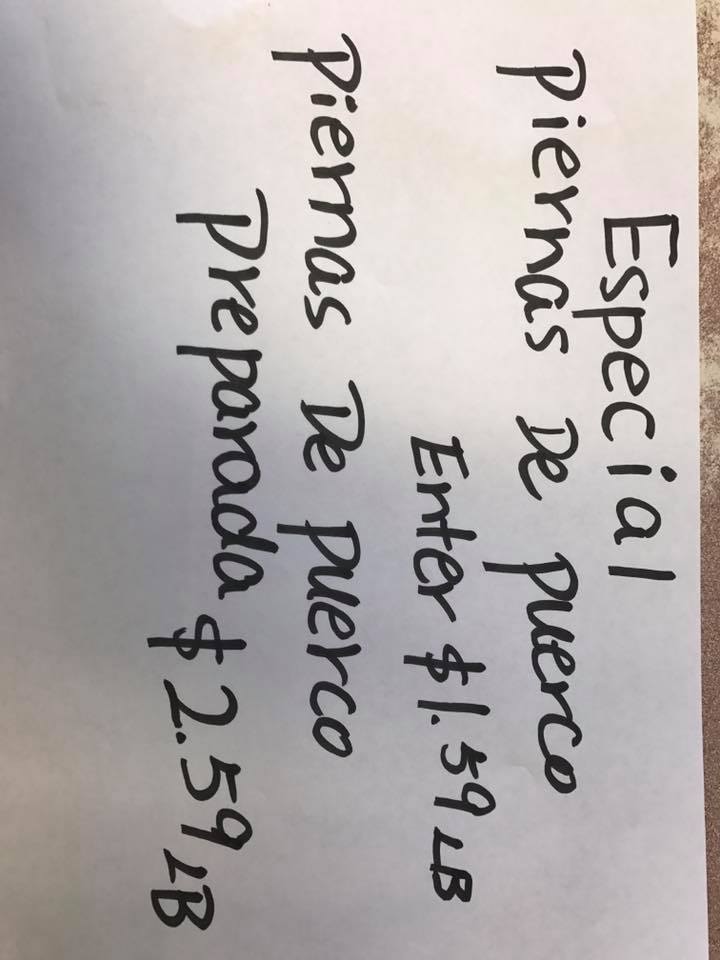 Especial
Piernas De puerco
Enter $1.59 LB
Piernas De puerco
Preparada $2.59 LB